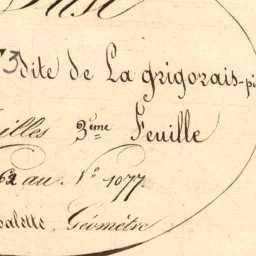 dite de La grigorais-pi
illes 3ème Feuille
62 au N° 1077
alette Géomètre